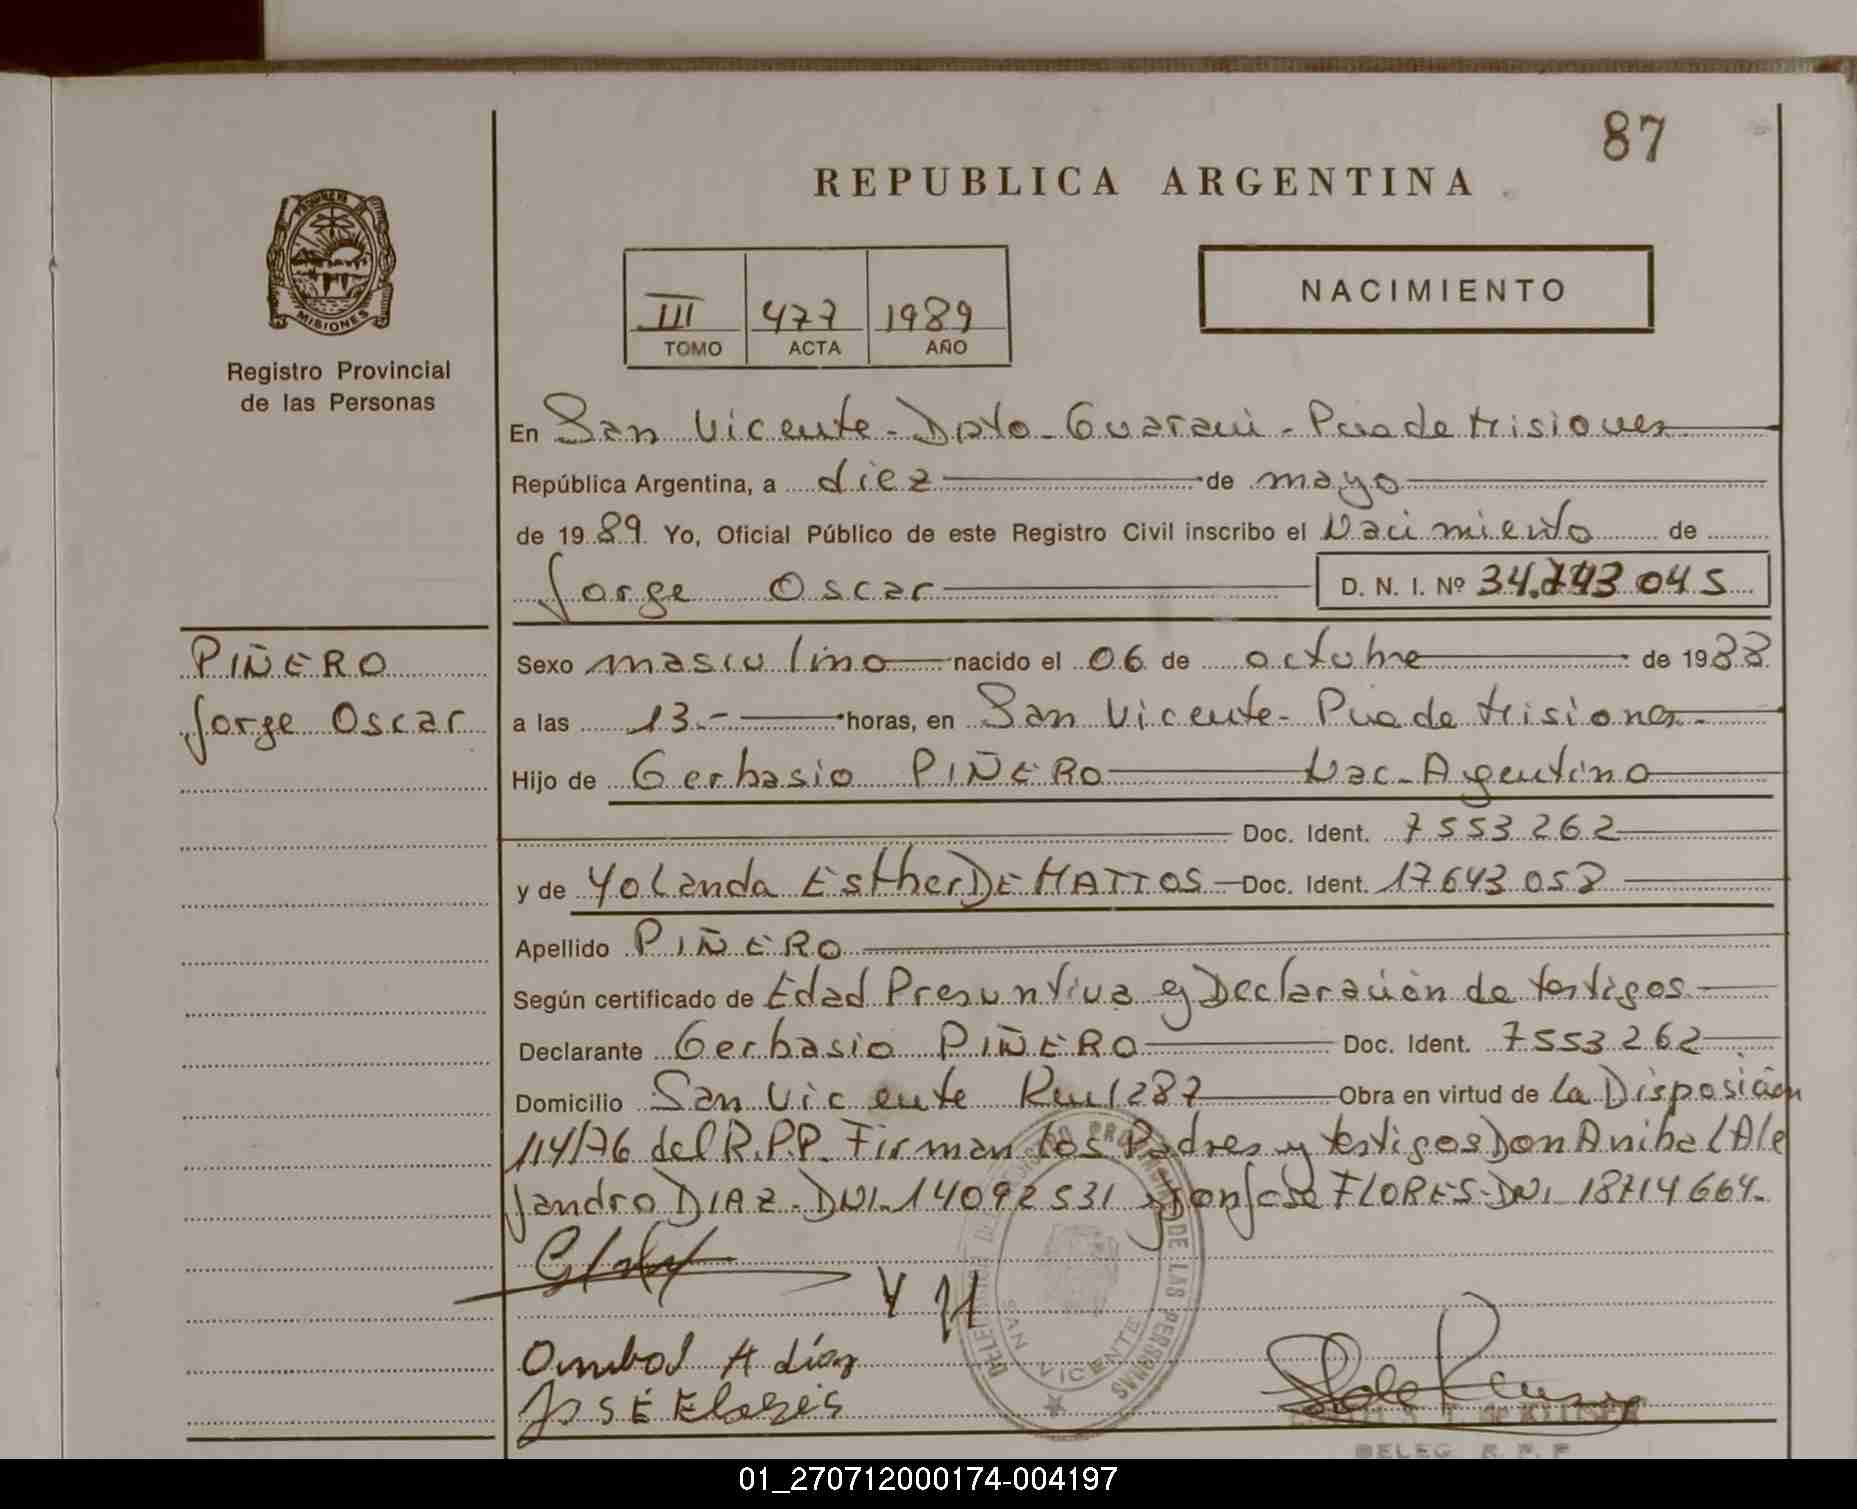 87
REPUBLICA ARGENTINA
PROVINCIA DE
MISIONES
Registro Provincial
de las Personas
III 477 1989
TOMO ACTA AÑO
NACIMIENTO
En San Vicente - Dpto - Guaraní - Pcia de Misiones
República Argentina, a diez de mayo
de 1989. Yo, Oficial Público de este Registro Civil inscribo el Nacimiento de
Jorge Oscar D. N. I. Nº 34.743 045
PIÑERO
Jorge Oscar
Sexo masculino nacido el 06 de octubre de 1988
a las 13.- horas, en San Vicente - Pcia de Misiones
Hijo de Gerbasio PIÑERO Nac - Argentino
Doc. Ident. 7553262
y de Yolanda Esther DE MATTOS Doc. Ident. 17643058
Apellido PIÑERO
Según certificado de Edad Presuntiva y Declaración de testigos
Declarante Gerbasio PIÑERO Doc. Ident. 7553262
Domicilio San Vicente Km 1287 Obra en virtud de la Disposición
114/76 del R.P.P. Firman los Padres y testigos Don Anibal Ale
jandro DIAZ - DNI - 14092531 y Don Jose FLORES - DNI 18714664.
DELEGACION DEL REGISTRO PROVINCIAL DE LAS PERSONAS
SAN VICENTE
A díaz
JOSÉ
DELEG R. P. P
01_270712000174-004197